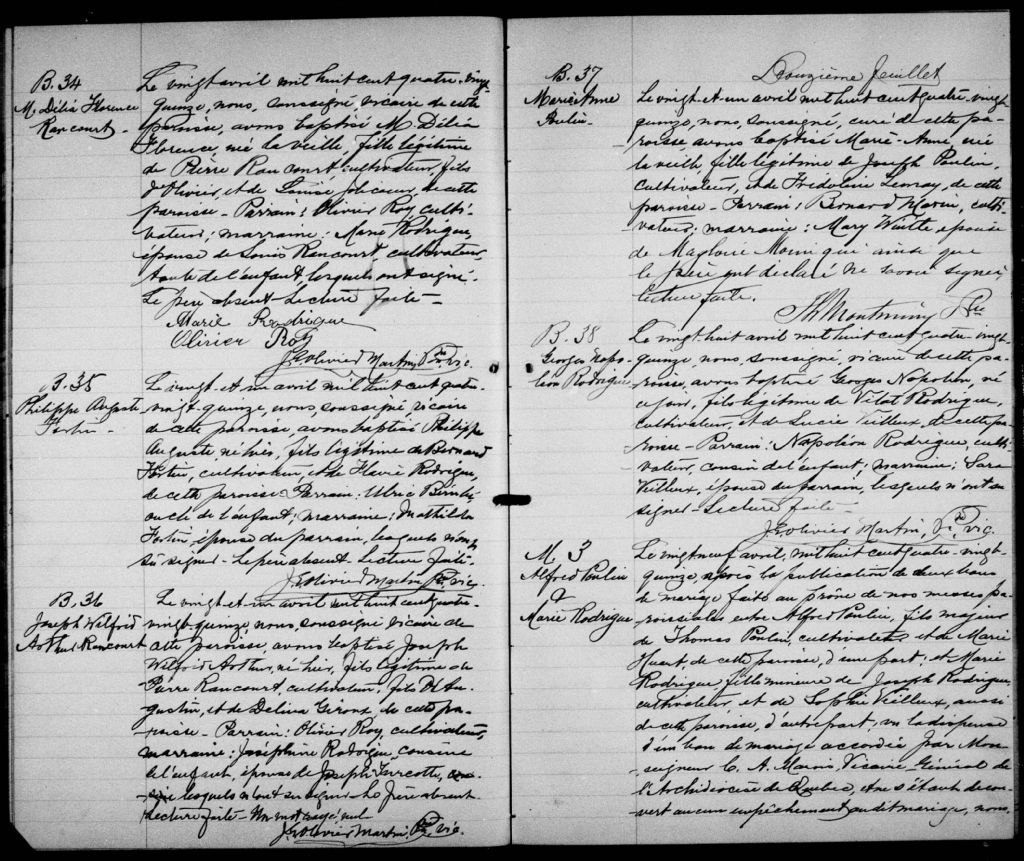 B. 34
M. Délia Florence
Rancourt
Le vingt avril mil huit cent quatre-vingt
quinze, nous, soussigné, vicaire de cette
paroisse, avons baptisé M. Délia
Florence, née la veille, fille légitime
de Pierre Rancourt, cultivateur, fils
d'Olivier, et de Louise Jolicoeur, de cette
paroisse - Parrain: Olivier Roy, culti-
vateur; marraine: Marie Rodrigue,
épouse de Louis Rancourt, cultivateur,
tante de l'enfant, lesquels ont signé.
Le père absent - Lecture faite -
Marie Rodrigue
Olivier Roy
J. Olivier Martin Ptre vic.
B. 35
Philippe Auguste
Fortin
Le vingt-et-un avril mil huit cent quatre-
vingt-quinze, nous, soussigné vicaire
de cette paroisse, avons baptisé Philippe
Auguste né hier, fils légitime de Bernard
Fortin, cultivateur, et de Flavie Rodrigue,
de cette paroisse Parrain: Ulric
oncle de l'enfant; marraine: Mathilda
Fortin, épouse du parrain, lesquels n'ont
su signer - Le père absent. Lecture faite.
J. Olivier Martin Ptre vic.
B. 36
Joseph Wilfrid
Arthur Rancourt
Le vingt-et-un avril mil huit cent quatre-
vingt-quinze, nous, soussigné vicaire de
cette paroisse, avons baptisé Joseph
Wilfrid Arthur, né hier, fils légitime de
Pierre Rancourt, cultivateur, fils d'Au-
gustin, et de Delina Giroux de cette pa-
roisse - Parrain: Olivier Roy, cultivateur,
marraine: Joséphine Rodrigue, cousine
de l'enfant, épouse de Joseph Turcotte,
lesquels n'ont su signer - Le père absent -
Lecture faite - Un mot rayé nul
J. Olivier Martin, Ptre vic.
Douzième feuillet
B. 37
Marie Anne
Poulin
Le vingt-et-un avril mil huit cent quatre-vingt-
quinze, nous, soussigné, curé de cette pa-
roisse avons baptisé Marie-Anne, née
la veille, fille légitime de Joseph Poulin,
cultivateur, et de Fridoline Lemay, de cette
paroisse - Parrain: Bernard Morin, culti-
vateur; marraine: Mary épouse
de Magloire qui ainsi que
le père ont déclaré ne savoir signer,
lecture faite.
Th Montminy Ptre
B. 38
Georges Napo-
léon Rodrigue
Le vingt-huit avril mil huit cent quatre-vingt-
quinze, nous, soussigné, vicaire de cette pa-
roisse, avons baptisé Georges Napoléon, né
ce jour, fils légitime de Vital Rodrigue,
cultivateur, et de Lucie Veilleux, de cette pa-
roisse - Parrain: Napoléon Rodrigue, culti-
vateur, cousin de l'enfant; marraine: Sara
Veilleux, épouse du parrain, lesquels n'ont su
signer - Lecture faite -
J. Olivier Martin, Ptre vic.
M. 3
Alfred Poulin
&
Marie Rodrigue
Le vingt neuf avril, mil huit cent quatre-vingt-
quinze, après la publication de deux bans
de mariage faite au prône de nos messes pa-
roissiales entre Alfred Poulin, fils majeur
de Thomas Poulin, cultivateur, et de Marie
Huart, de cette paroisse, d'une part; et Marie
Rodrigue, fille mineure de Joseph Rodrigue,
cultivateur, et de Sophie Veilleux, aussi
de cette paroisse, d'autre part; vu la dispense
d'un ban de mariage accordée par Mon-
seigneur C. A. Marois, Vicaire Général de
l'Archidiocèse de Québec, et ne s'étant décou-
vert aucun empêchement au dit mariage, nous,